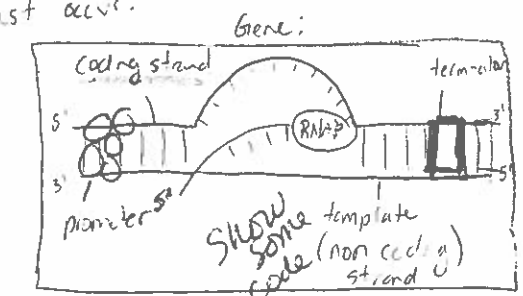 occur.
Gene:
coding strand
terminator
5' 3'
RNAP
3' 5'
promoter 5'
Show
some
code
template
(non coding)
strand